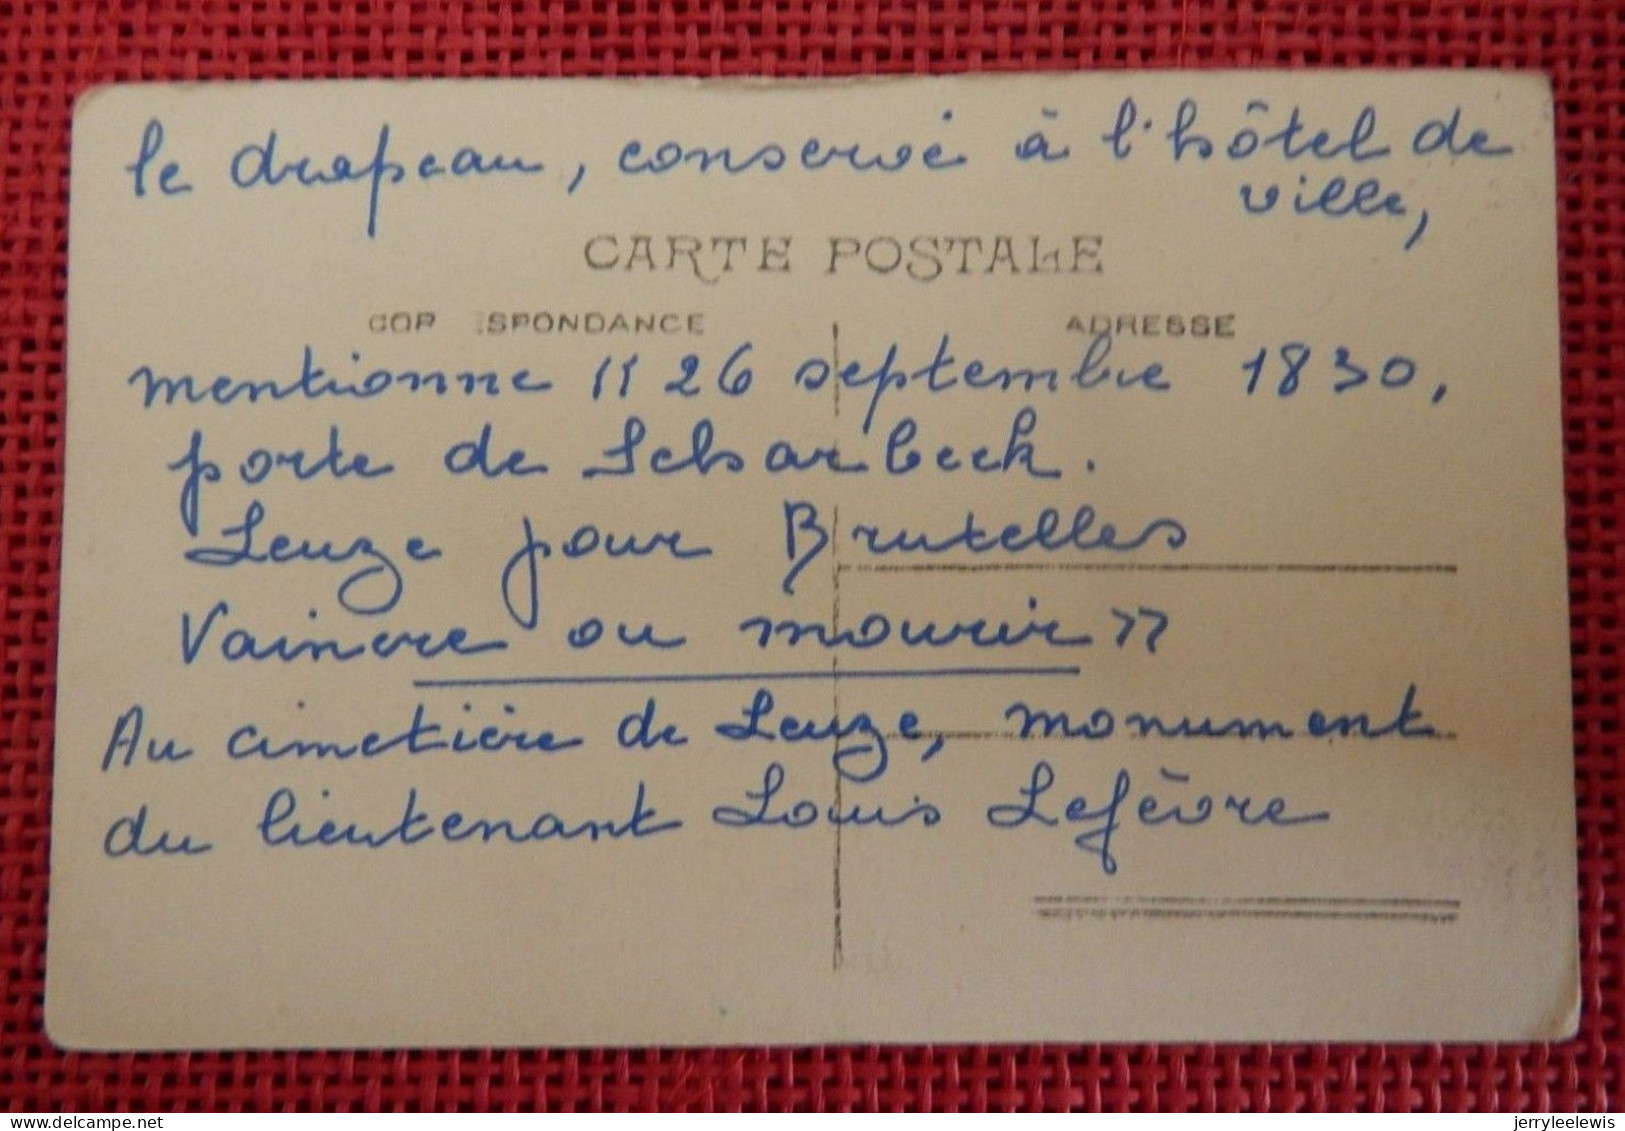 le drapeau, conservé à l'hôtel de
ville,
CARTE POSTALE
CORRESPONDANCE
ADRESSE
mentionne " 26 septembre 1830,
porte de Scharbeek.
Leuze pour Bruxelles
Vaincre ou mourir "
Au cimetière de Leuze, monument
du lieutenant Louis Lefèvre
jerryleelewis
delcampe.net